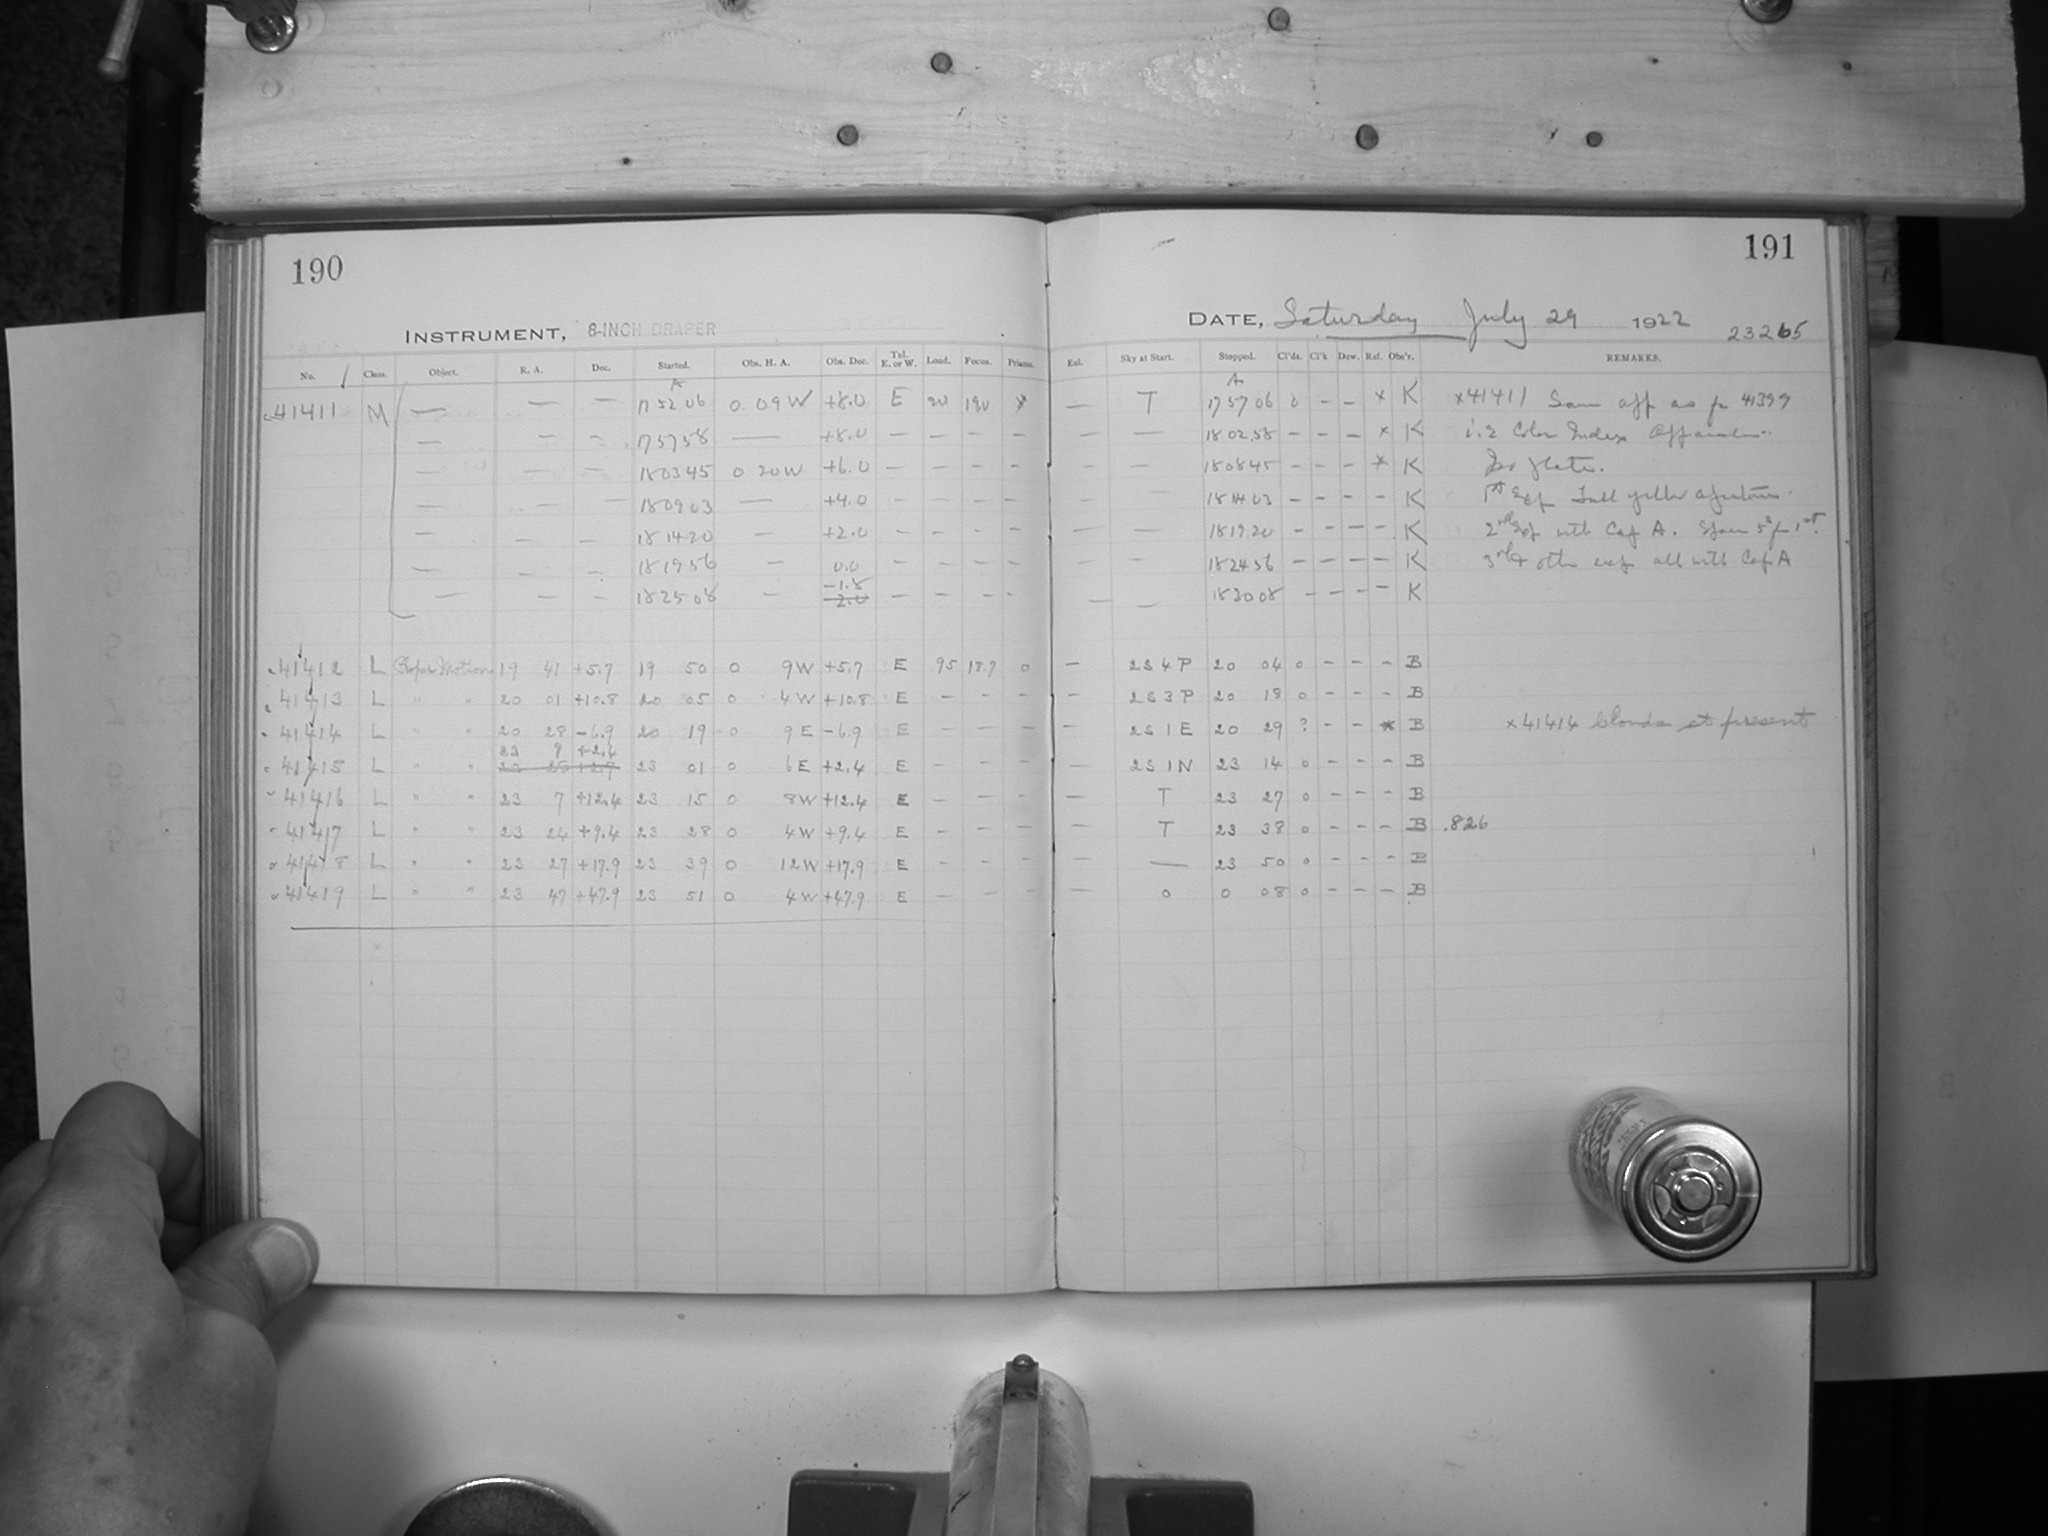 190
INSTRUMENT, 8-INCH DRAPER
No. Class. Object. R. A. Dec. Started. Obs. H. A. Obs. Dec. Tel. E. or W. Load. Focus. Prisms.
A
41411 M — — — 17 52 06 0 09 W +8.0 E 20 190
— — — 17 57 58 — +8.0 — — — —
— — — 18 03 45 0 20 W +6.0 — — — —
— — — 18 09 03 — +4.0 — — — —
— — — 18 14 20 — +2.0 — — — —
— — — 18 19 56 — 0.0 — — — —
-1.8
— — — 18 25 08 — -2.0 — — — —
41412 L Proper Motion 19 41 +5.7 19 50 0 9 W +5.7 E 95 18.7 0
41413 L " " 20 01 +10.8 20 05 0 4 W +10.8 E — — —
41414 L " " 20 28 -6.9 20 19 0 9 E -6.9 E — — —
23 7 +2.4
41415 L " " 23 25 +2.7 23 01 0 6 E +2.4 E — — —
41416 L " " 23 7 +12.4 23 15 0 8 W +12.4 E — — —
41417 L " " 23 24 +9.4 23 28 0 4 W +9.4 E — — —
41418 L " " 23 27 +17.9 23 39 0 12 W +17.9 E — — —
41419 L " " 23 47 +47.9 23 51 0 4 W +47.9 E — — —
191
DATE, Saturday July 29 1922 23265
Enl. Sky at Start. Stopped. Cl'ds. Cl'k Dew. Ref. Obs'r. REMARKS.
A
— T 17 57 06 0 – – x K x41411 Same app as for 41399
— — 18 02 58 – – – x K i.e Color Index Apparatus
— — 18 08 45 – – – x K Iso plate.
— 18 14 03 – – – – K 1st Exp Full yellow aperture
— — 18 19 20 – – – – K 2nd Exp with Cap A. 1st.
— — 18 24 56 – – – – K 3rd & other exp all with Cap A
— — 18 30 08 – – – – K
— 2S4P 20 04 0 – – – B
— 2S3P 20 18 0 – – – B
— 2S1E 20 29 ? – – x B x41414 Clouds at present
— 2S1N 23 14 0 – – – B
— T 23 27 0 – – – B
— T 23 38 0 – – – B .826
— — 23 50 0 – – – B
— 0 0 08 0 – – – B